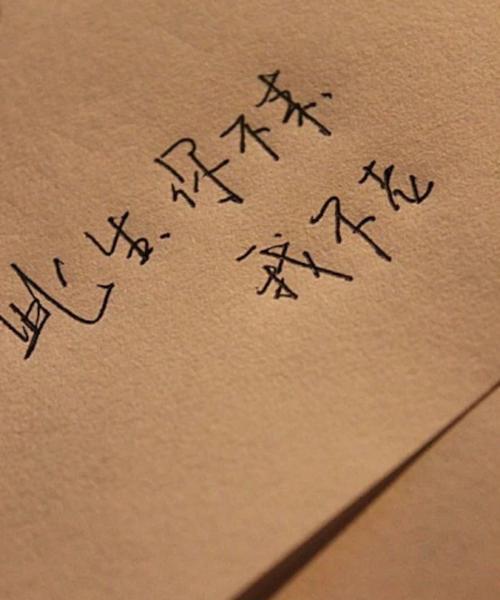 此生.你不来.
我不老